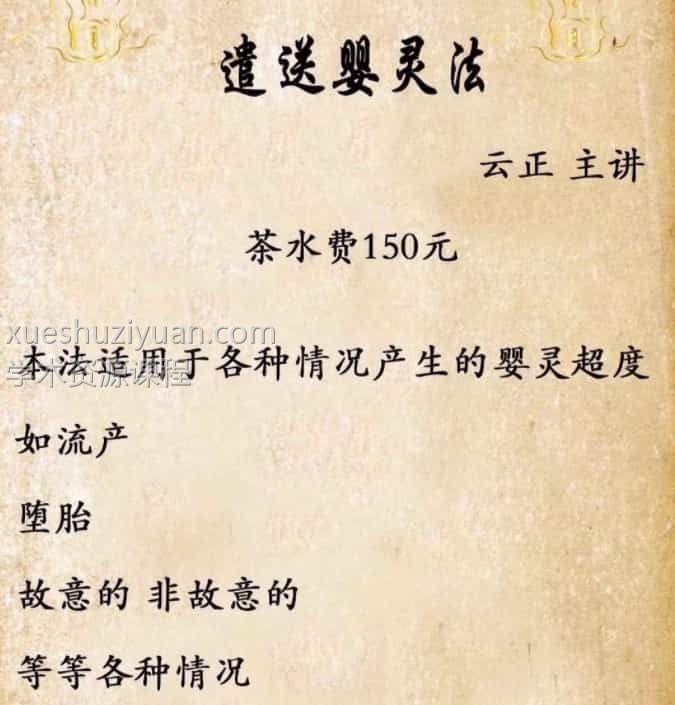 遣送婴灵法
云正 主讲
茶水费150元
xueshuziyuan.com
本法适用于各种情况产生的婴灵超度
学术资源课程
如流产
堕胎
故意的 非故意的
等等各种情况